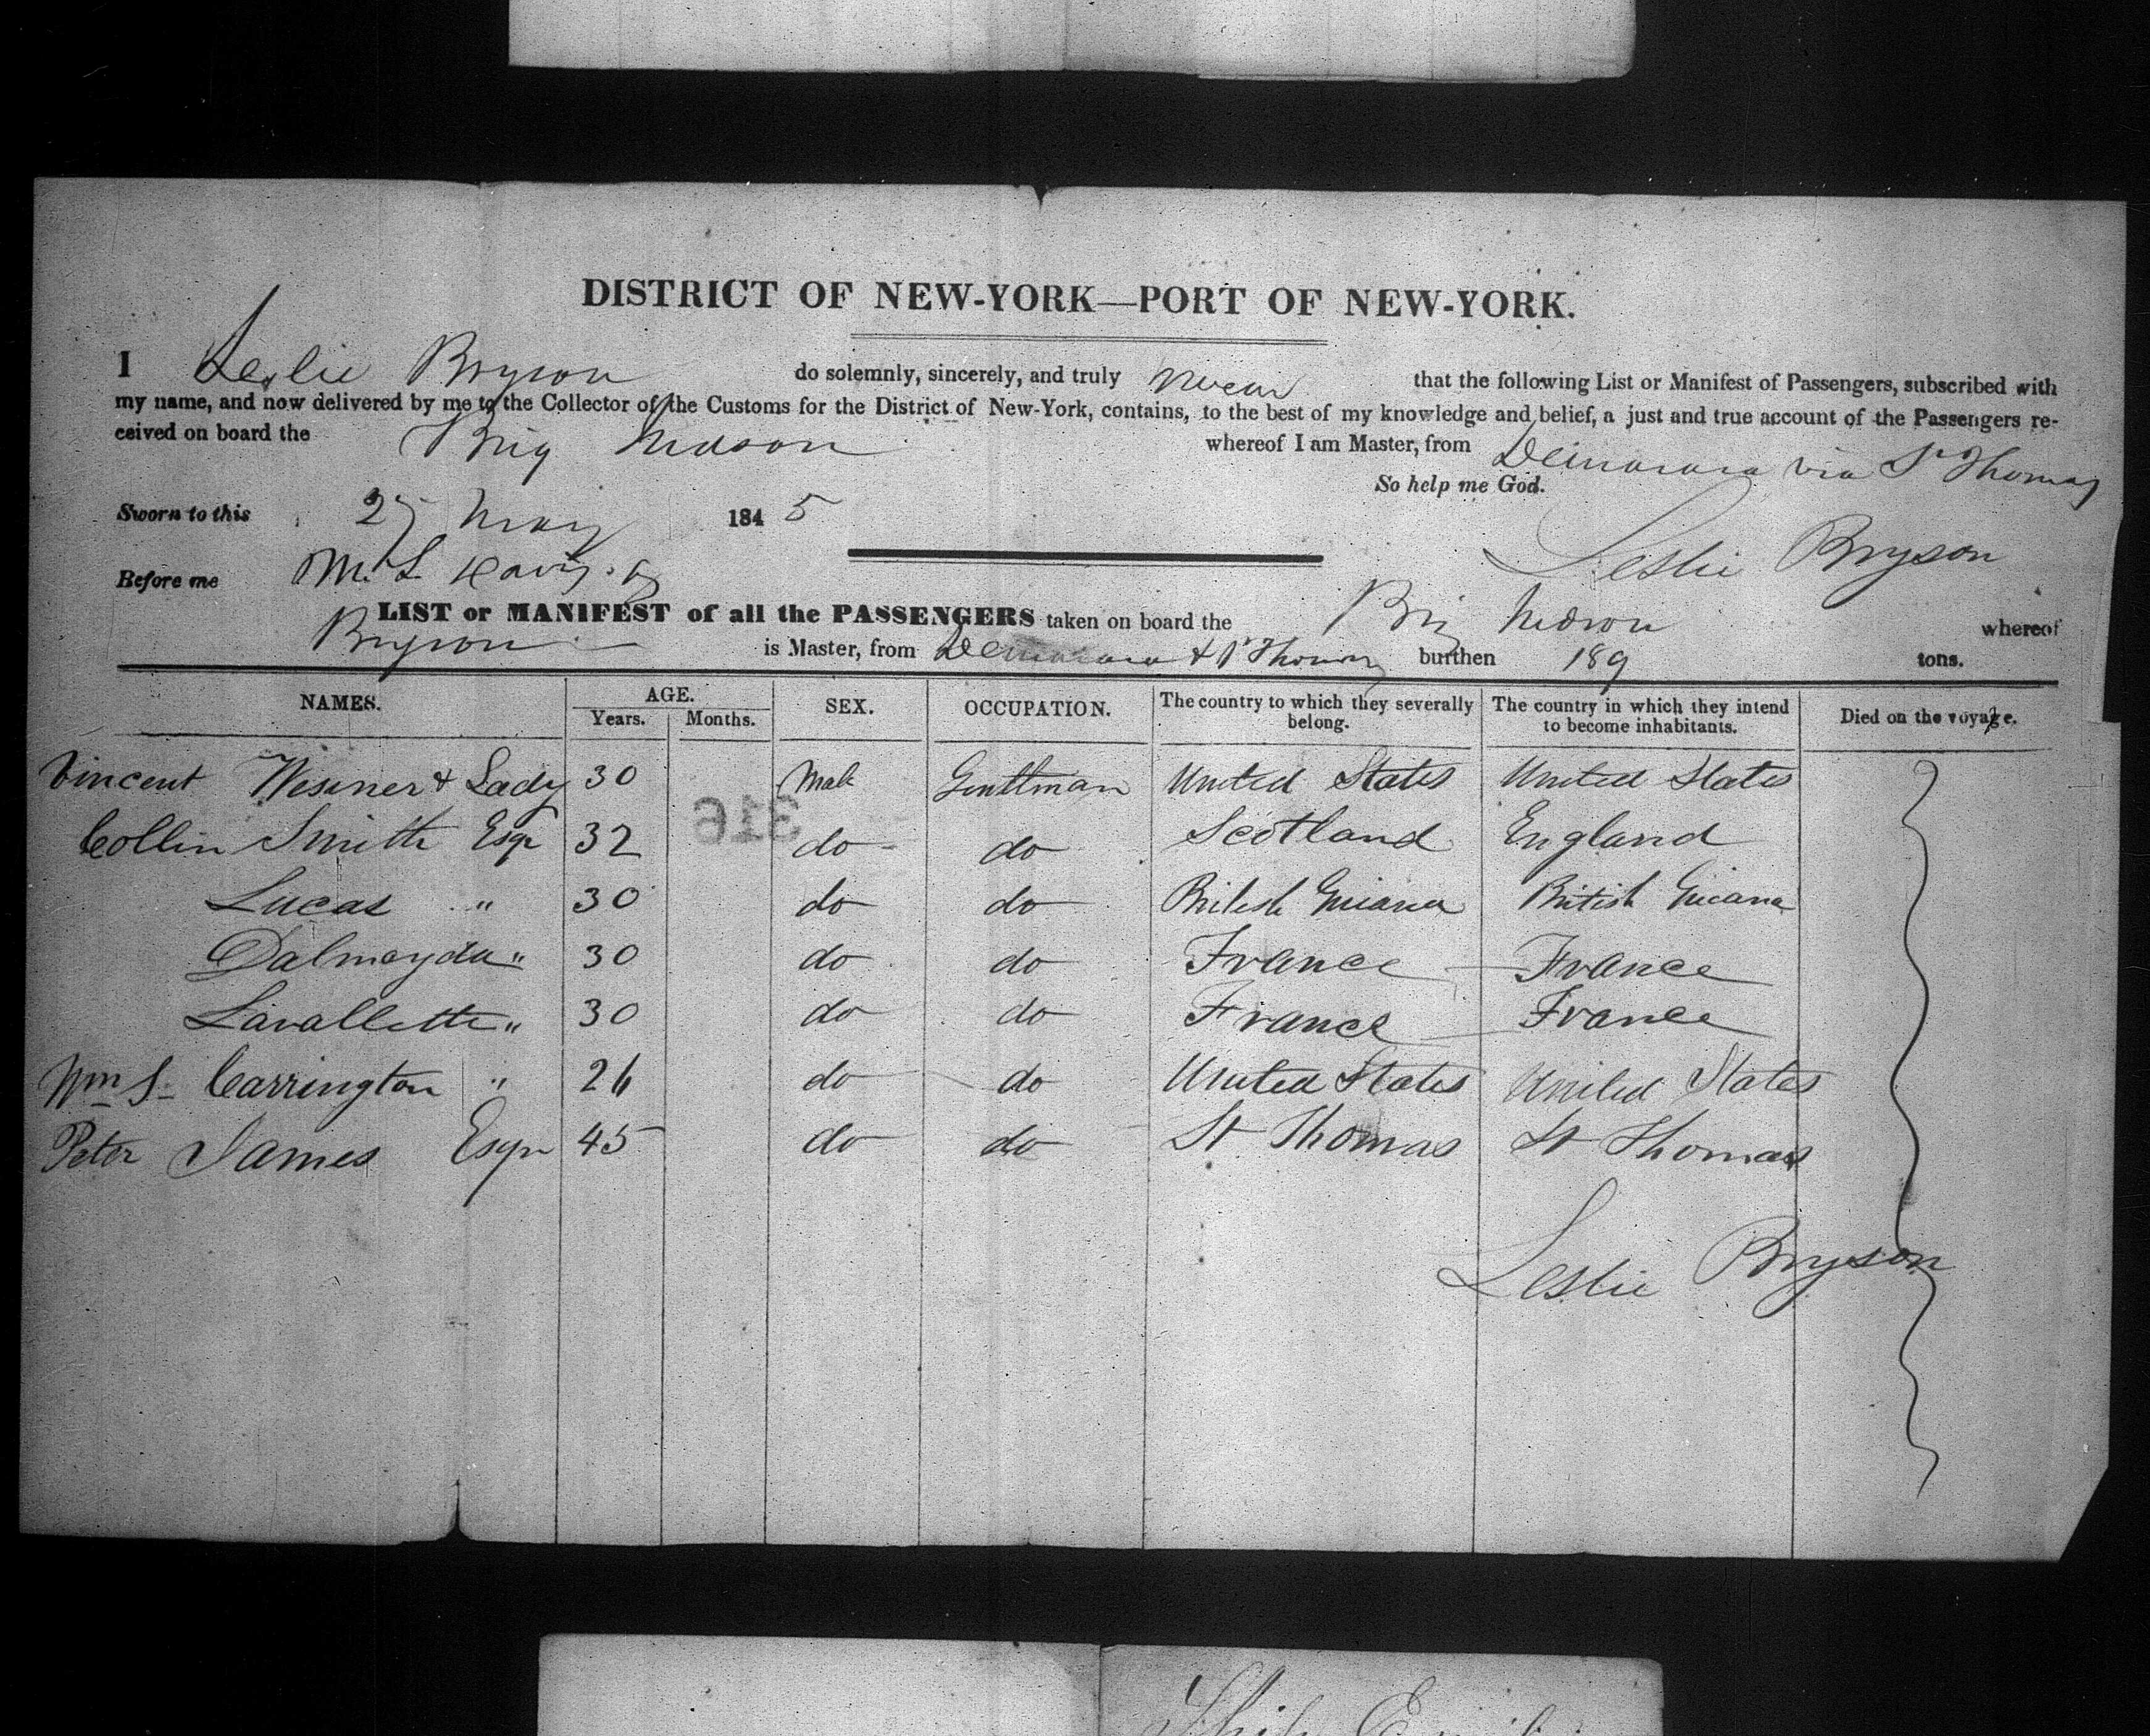 DISTRICT OF NEW-YORK—PORT OF NEW-YORK.
I Leslie Bryson do solemnly, sincerely, and truly swear that the following List or Manifest of Passengers, subscribed with
my name, and now delivered by me to the Collector of the Customs for the District of New-York, contains, to the best of my knowledge and belief, a just and true account of the Passengers re-
ceived on board the Brig whereof I am Master, from Demarara via St Thomas
So help me God.
Sworn to this 27 May 1845
Leslie Bryson
Before me M. L. Davis
LIST or MANIFEST of all the PASSENGERS taken on board the Brig whereof
Bryson is Master, from Demarara & St Thomas burthen 189 tons.
NAMES. AGE. Years. Months. SEX. OCCUPATION. The country to which they severally belong. The country in which they intend to become inhabitants. Died on the voyage.
Vincent Wesiner & Lady 30 Male Gentleman United States United States
316
Collin Smith Esqr 32 do do Scotland England
Lucas " 30 do do British Guiana British Guiana
Dalmeyda " 30 do do France France
Lavallette " 30 do do France France
Wm S. Carrington " 26 do do United States United States
Peter James Esqr 45 do do St Thomas St Thomas
Leslie Bryson
Ship